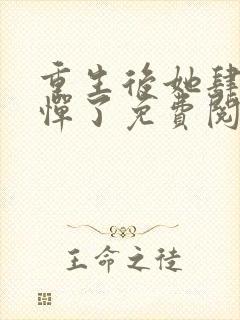 重生後她肆
憚了免費閱
王命之徒